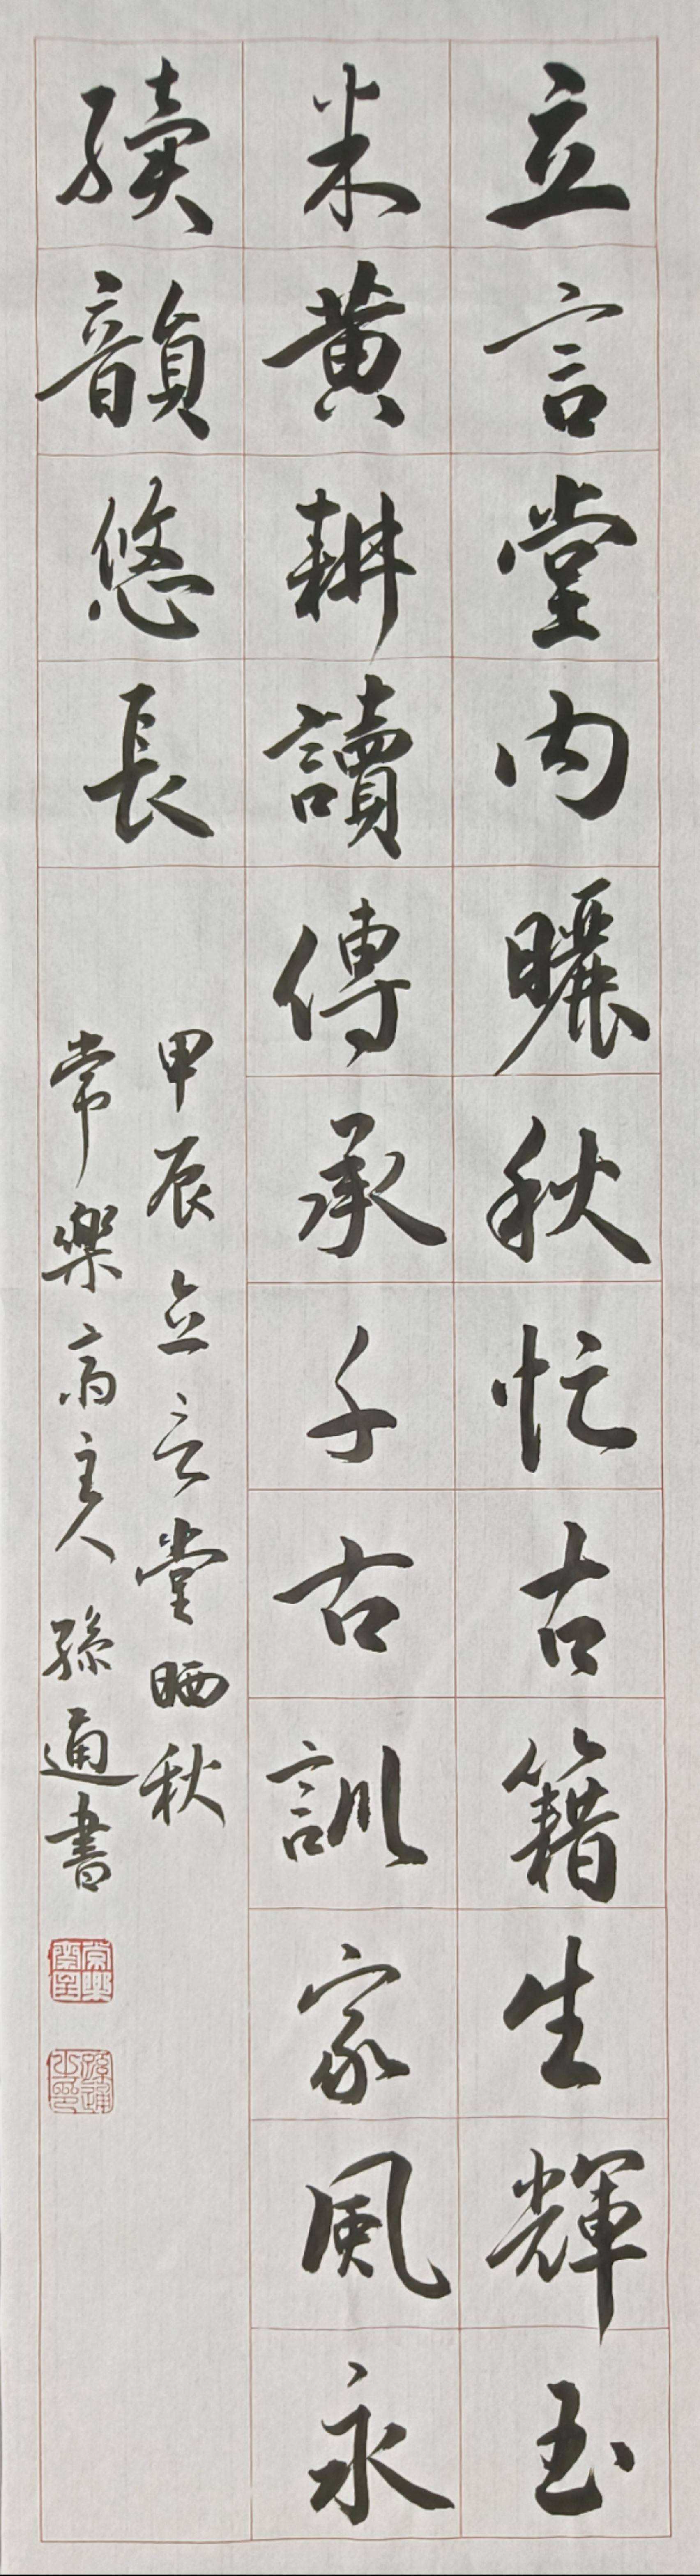 立言堂内曬秋忙古籍生輝玉
米黄耕讀傳承千古訓家風永
續韻悠長
甲辰立言堂晒秋
常樂齋主人孫通書
常樂齋主
孫通之印